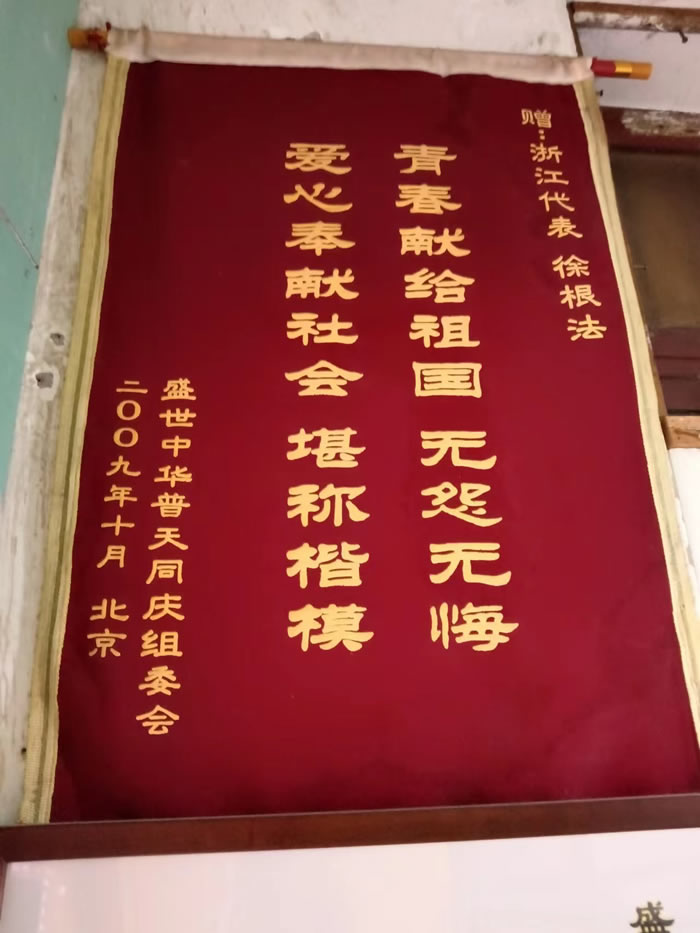 赠：浙江代表 徐根法
青春献给祖国 无怨无悔
爱心奉献社会 堪称楷模
盛世中华普天同庆组委会
二〇〇九年十月 北京
盛